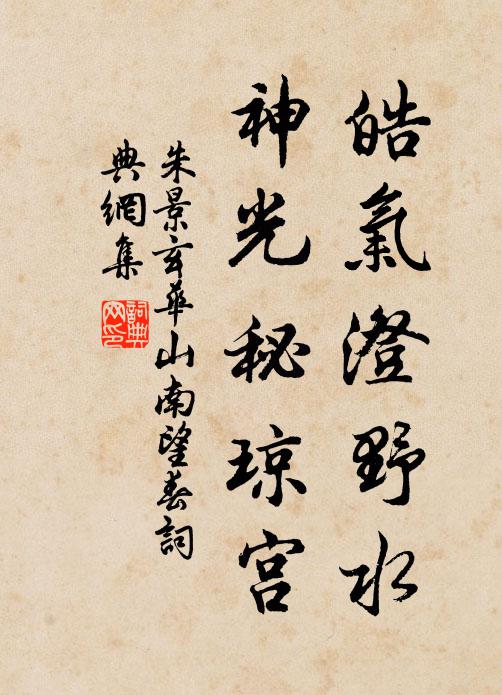 皓氣澄野水
神光秘琼宫
朱景玄華山南望春詞
典網集
詞典
网印